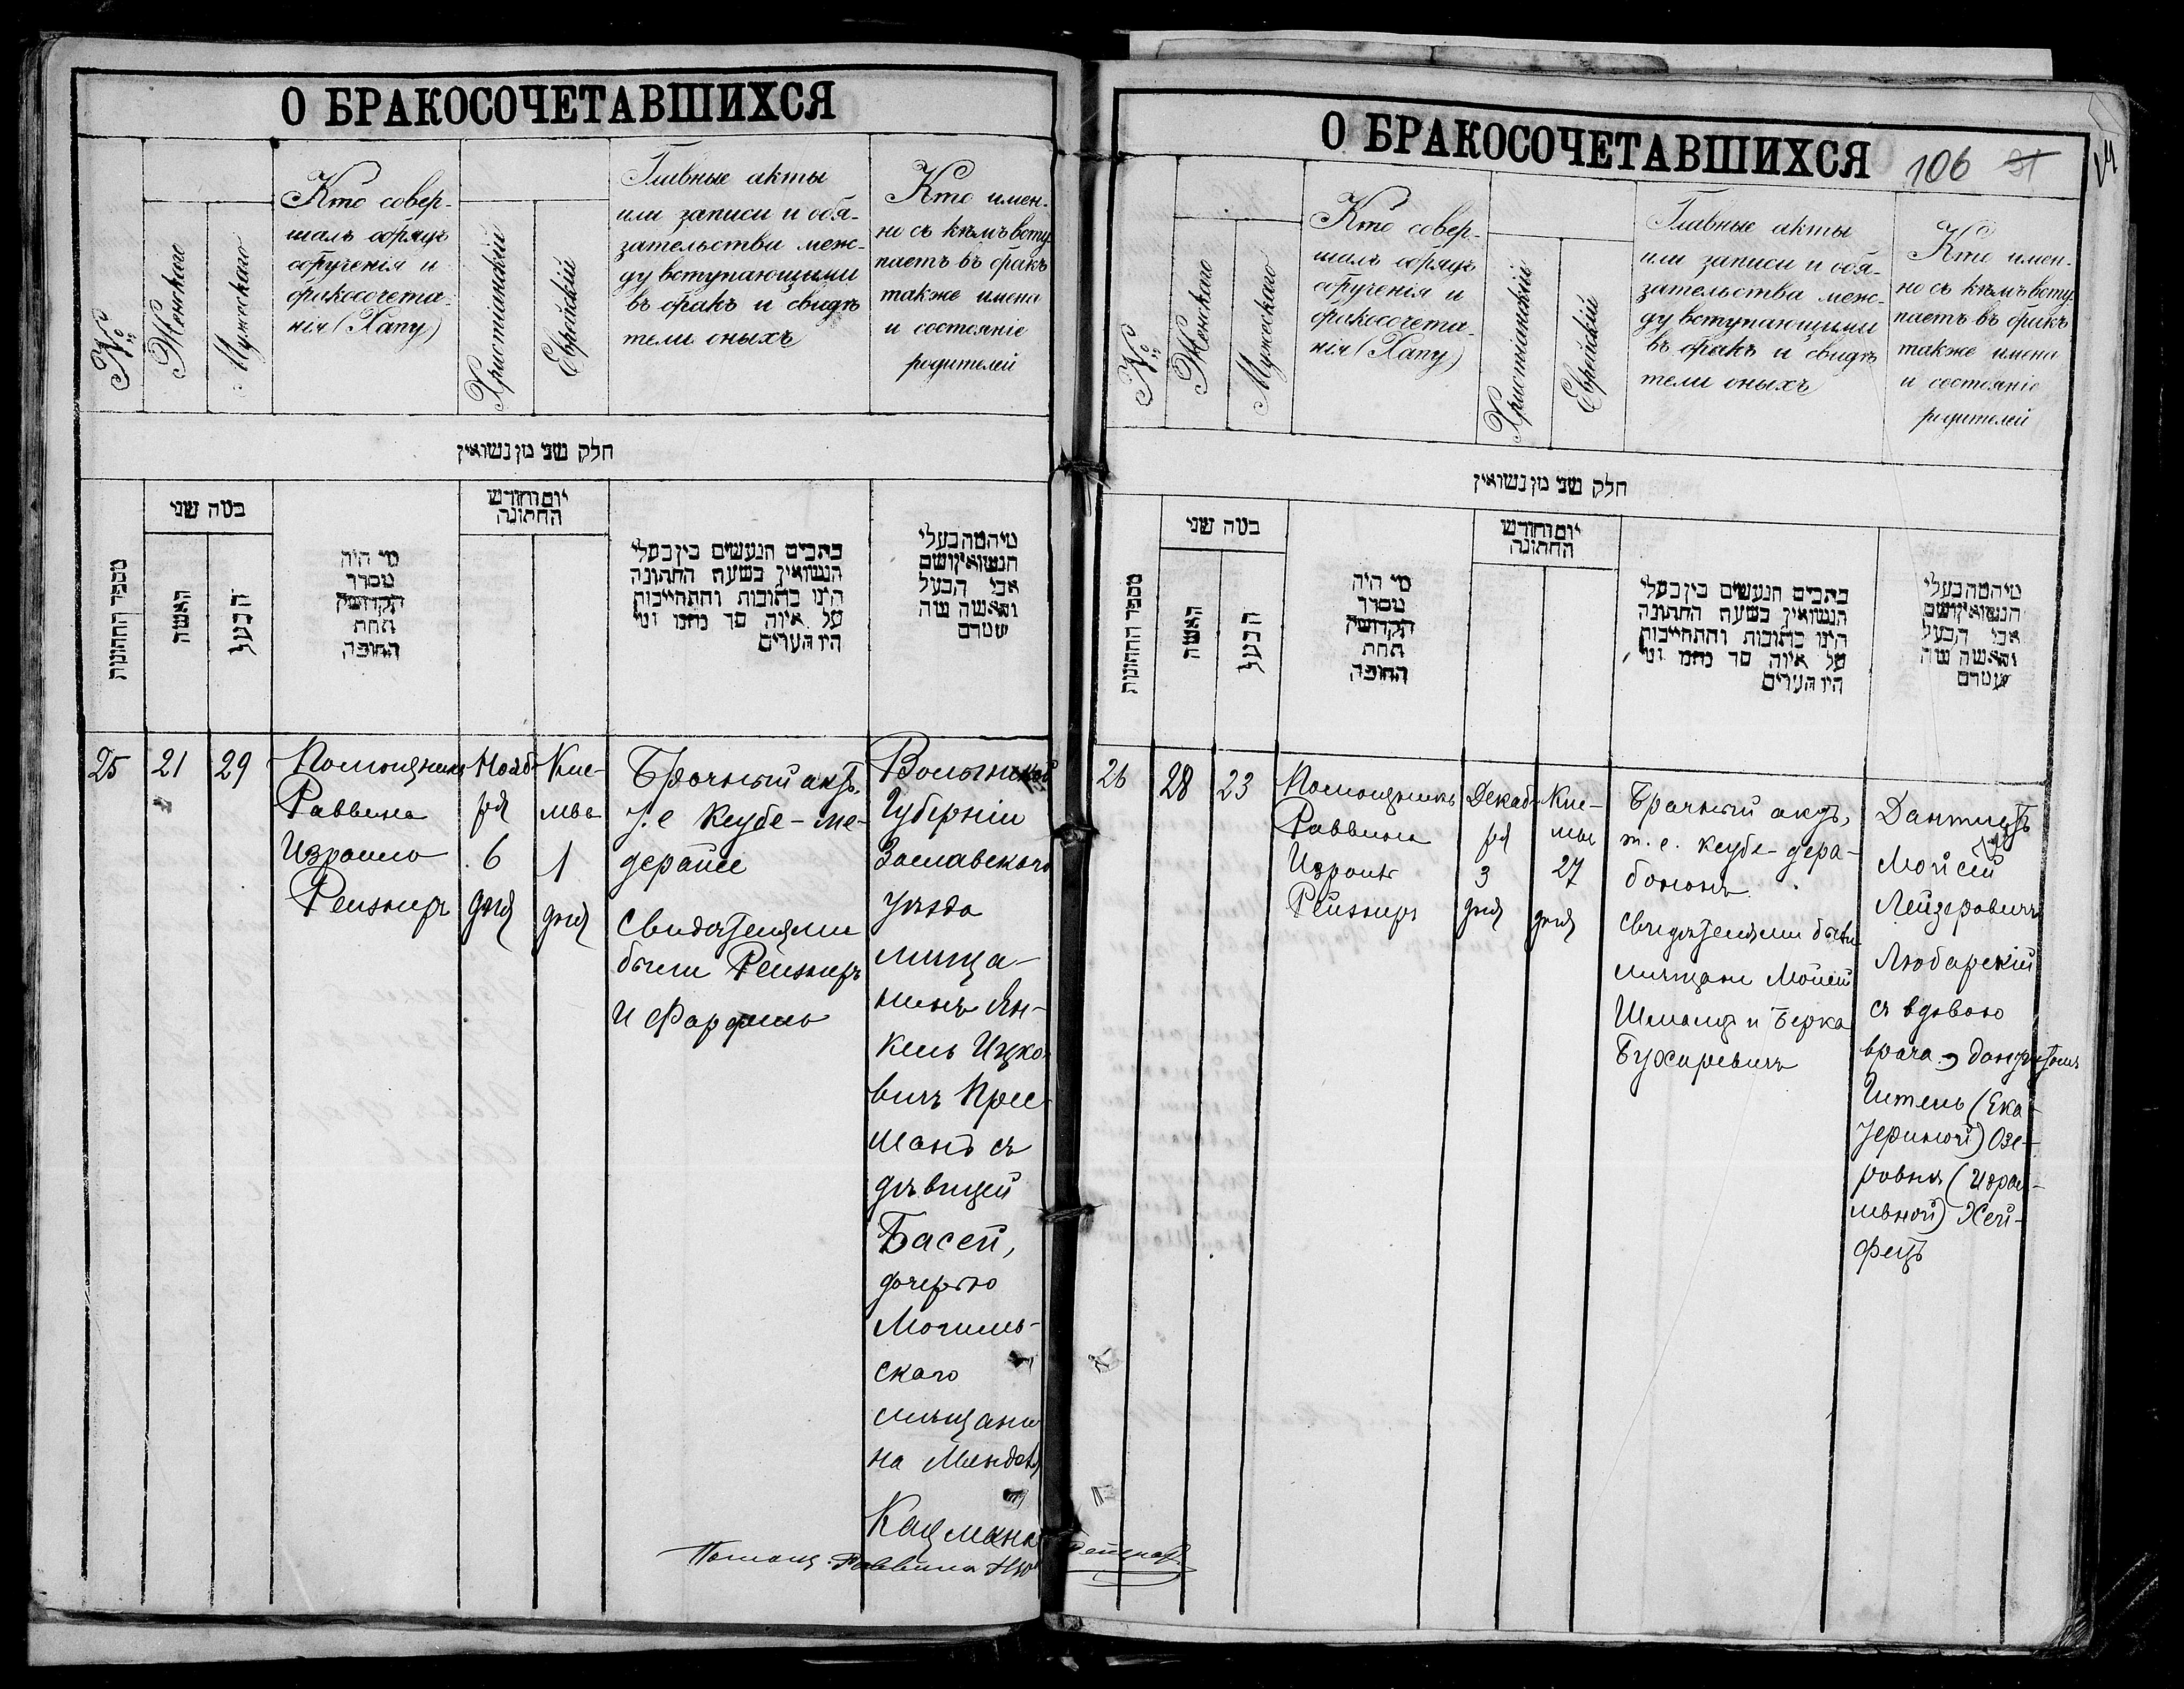 О БРАКОСОЧЕТАВШИХСЯ
№
Женскаго
Мужескаго
Кто совер-
шалъ обрядъ
обрученія и
бракосочета-
нія (Хапу)
Христіанскій
Еврейскій
Главные акты
или записи и обя-
зательства меж-
ду вступающими
въ бракъ и свидѣ
тели оныхъ
Кто имен-
но съ кѣмъ всту-
паетъ въ бракъ
также имена
и состояніе
родителей
חלק שני מן נשואין
מספר החתונות
בטה שני
האשה
הבעל
מי היה
מסדר
הקדושין
תחת
החופה
יום וחודש
החתונה
כתבים הנעשים בין בעלי
הנשואין בשעת החתונה
היינו כתובות והתחייבות
על איזה סך כחמו ומי
היו הערים
מיהמה בעלי
הנשואין ושם
אבי הבעל
והאשה ומה
שמרם
25
21
29
Помощникъ
Раввина
Израиль
Рейзнеръ
Нояб-
ря
6
дня
Кис-
лвъ
1
дня
Брачный актъ,
т.е Ктубе-ме-
дерайсе
Свидѣтелями
были Рейзнеръ
и Фарфель
Волынской
Губерніи
Заславскаго
уѣзда
мѣща-
нинъ Ян-
кель Ицко-
вичъ Прес-
манъ съ
дѣвицей
Басей,
дочерью
Могилев-
скаго
мѣщани
на Менделя
Кацмана
Помощ. Раввина Изр. Рейзнеръ
О БРАКОСОЧЕТАВШИХСЯ
106
№
Женскаго
Мужескаго
Кто совер-
шалъ обрядъ
обрученія и
бракосочета-
нія (Хапу)
Христіанскій
Еврейскій
Главные акты
или записи и обя-
зательства меж-
ду вступающими
въ бракъ и свидѣ
тели оныхъ
Кто имен-
но съ кѣмъ всту-
паетъ въ бракъ
также имена
и состояніе
родителей
חלק שני מן נשואין
מספר החתונות
בטה שני
האשה
הבעל
מי היה
מסדר
הקדושין
תחת
החופה
יום וחודש
החתונה
כתבים הנעשים בין בעלי
הנשואין בשעת החתונה
היינו כתובות והתחייבות
על איזה סך כחמו ומי
היו הערים
מיהמה בעלי
הנשואין ושם
אבי הבעל
והאשה ומה
שמרם
26
28
23
Помощникъ
Раввина
Израиль
Рейзнеръ
Декаб-
ря
3
дня
Кис-
лвъ
27
дня
Брачный актъ,
т.е. ктубе-дера-
бононъ.
Свидѣтелями были
мѣщане Мойсей
Шмальц и Берка
Бухаревичъ
Дантистъ
Мойсей
Лейзеровичъ
Любарскій
съ вдовою
врача, дантистомъ
Гителъ (Ека-
териной) Озе-
ровна (Израи-
левной) Хей-
фецъ